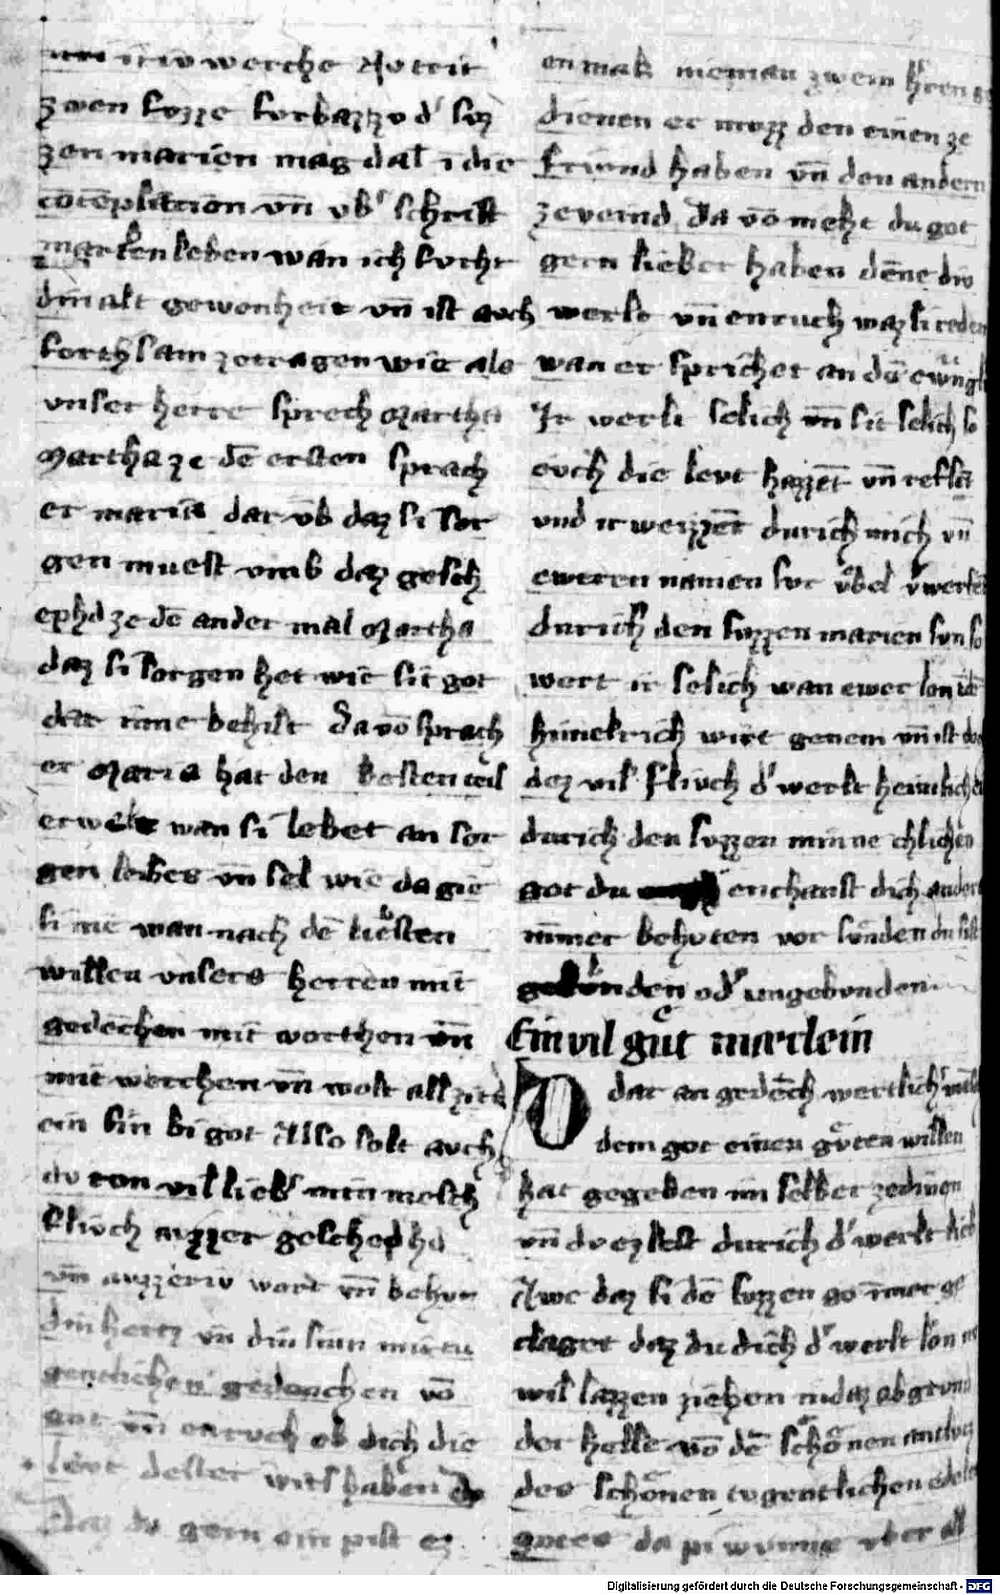 zwen fvzze fvrbaz zv d' svz
zen marien mag dal i die
cōtēplation vn̄ vb' schrift
marthen leben wan ich furht
din alt gewonheit vn̄ ist auch
forthsam zetragen wie als
vnser herre sprech Martha
Martha ze dē ersten sprach
er maria dar vb daz si sor
gen muest vmb daz gesch
ephd ze dē ander mal Martha
daz si sorgen het wie sie got
dar inne behilt Da vō sprach
er Maria hat den besten teil
erwelt wan si lebet an sor
gen leibes vn̄ sel wie da gie
si nie wan nach dē liebsten
willen vnsers herren mit
gedēchen mit worthen vn̄
mit werchen vn̄ wolt all zeit
ein sin bi got Also solt auch
dv ton vil lieb' min mēsch
flivch avzzer geschephd
vn̄ avzzeriv wort vn̄ behvt
din hertz vn̄ din sinn mit tu
gentlichen gedanchen vō
got vn̄ enruch ob dich die
levt dester wirs haben
Daz dv gern ein pist ez
en mak nieman zwein hren
dienen er mozz den einen ze
frivnd haben vn̄ den andern
ze veind da vō mehr du got
gern lieber haben dēne div
werlt vn̄ enruch waz si reden
wan er sprichet an dē ewāgli
Ir werlt selich vn̄ sit selich so
evch die levt hazzēt vn̄ refsēt
vnd ir werzzēt durich mich vn̄
eweren namen fvr vbel v'werfēt
durich den svzzen marien svn so
wert ir selich wan ewer lon
himelrich wirt genem vn̄ ist
dez vil flivch d' werlt heimlich
durich den svzzen minnechlichen
got du enchanst dich anders
nimmer behvten vor svnden du sist
gebvnden od' ungebvnden
Ein vil gůt merlein
D dar an gedēch wertlich
dem got einen gůten willen
hat gegeben im selber ze dinen
vn̄ dv ez lest durich d' werlt
Awe daz si dē svzzen got imer ge
claget daz du dich d' werlt lon
wil lazzen ziehen in daz abgrvnd
der helle vō dē schōnen antlvz
des schōnen tvgentlichen edelen
gotes da pi wunne vber all